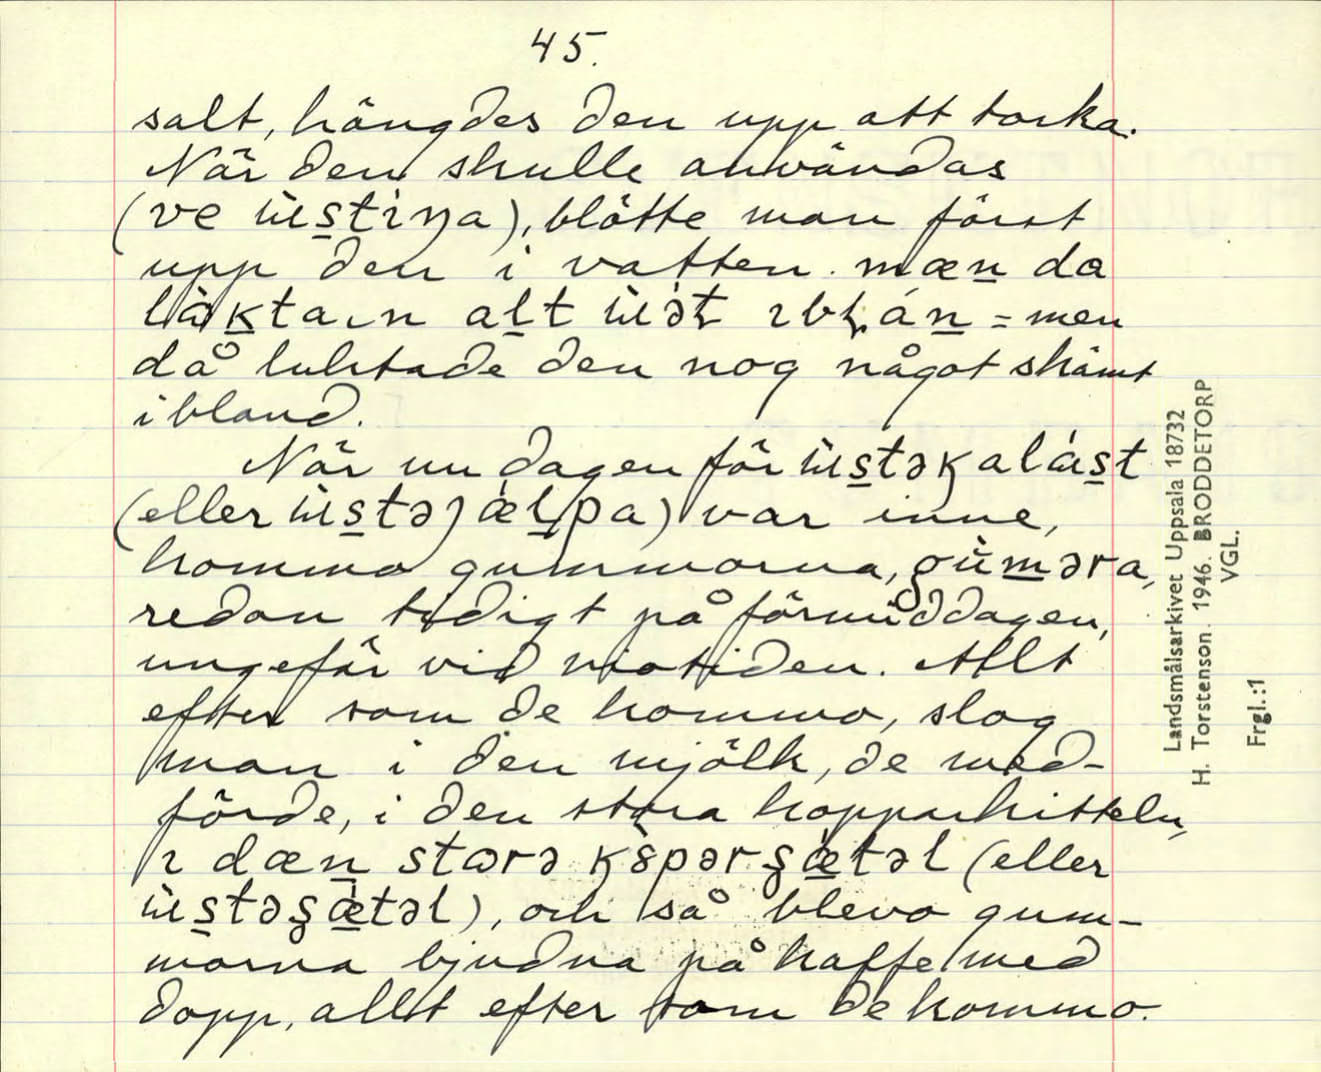 45.
salt, hängdes den upp att torka.
När den skulle användas
(ve ùstiŋa), blötte man först
upp den i vatten. mæn da
alt = men
då luktade den nog något skämt
ibland.
När nu dagen för
(eller ) var inne,
kommo gummorna, gùməra,
redan tidigt på förmiddagen,
ungefär vid niotiden. Allt
efter som de kommo, slog
man i den mjölk, de med-
förde, i den stora kopparkitteln,
ı dæn (eller
), och så blevo gum-
morna bjudna på kaffe med
dopp, allt efter som de kommo.
Landsmålsarkivet Uppsala 18732
H. Torstenson. 1946. BRODDETORP
VGL.
Frgl.:1